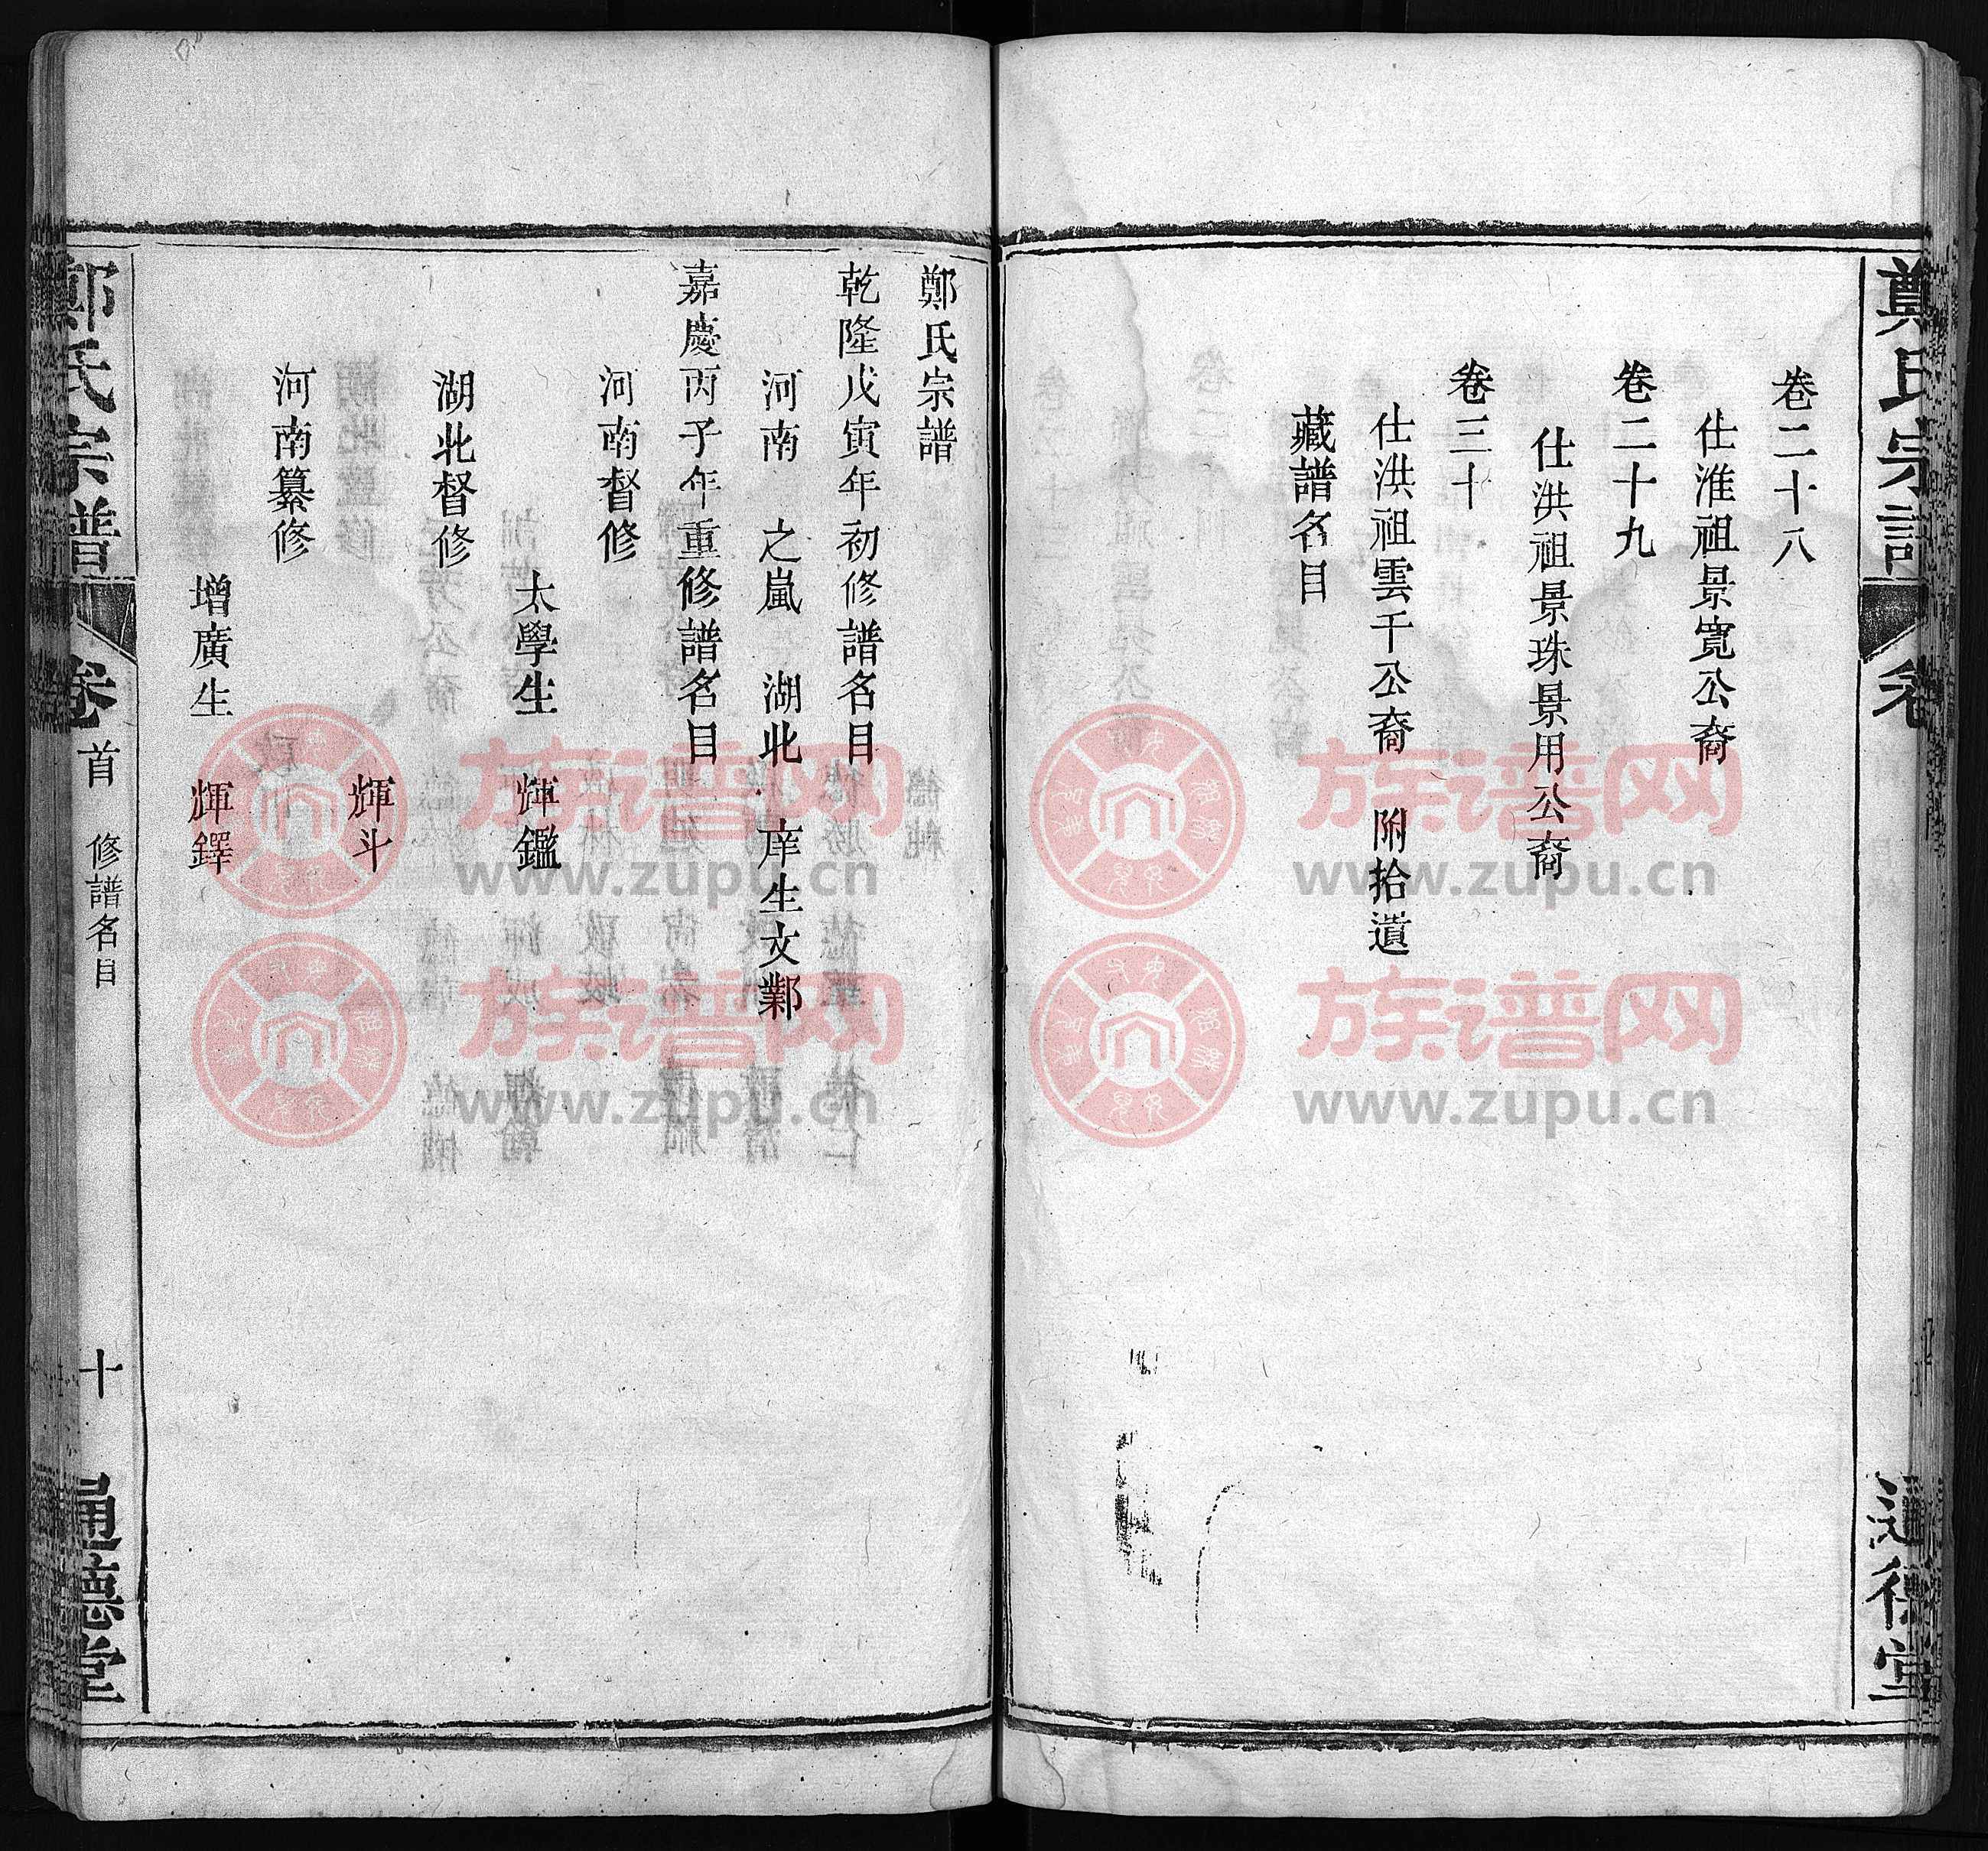 卷二十八
仕淮祖景寬公裔
卷二十九
仕洪祖景珠景用公裔
卷三十
仕洪祖雲千公裔 附拾遺
藏譜名目
鄭氏宗譜
乾隆戊寅年初修譜名目
河南 之嵐 湖北 庠生文鄴
嘉慶丙子年重修譜名目
河南督修
太學生 輝鑑
湖北督修
輝斗
河南纂修
增廣生 輝鐸
鄭氏宗譜 卷首 修譜名目 十 通德堂
族谱网
www.zupu.cn
族谱网
www.zupu.cn
族谱网
www.zupu.cn
族谱网
www.zupu.cn